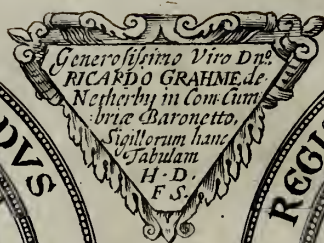 Generosissimo Viro Dno.
RICARDO GRAHME de
Netherby in Com: Cum
briæ Baronetto,
Sigillorum hanc
Tabulam
H · D ·
F S ·
DVS
REGI